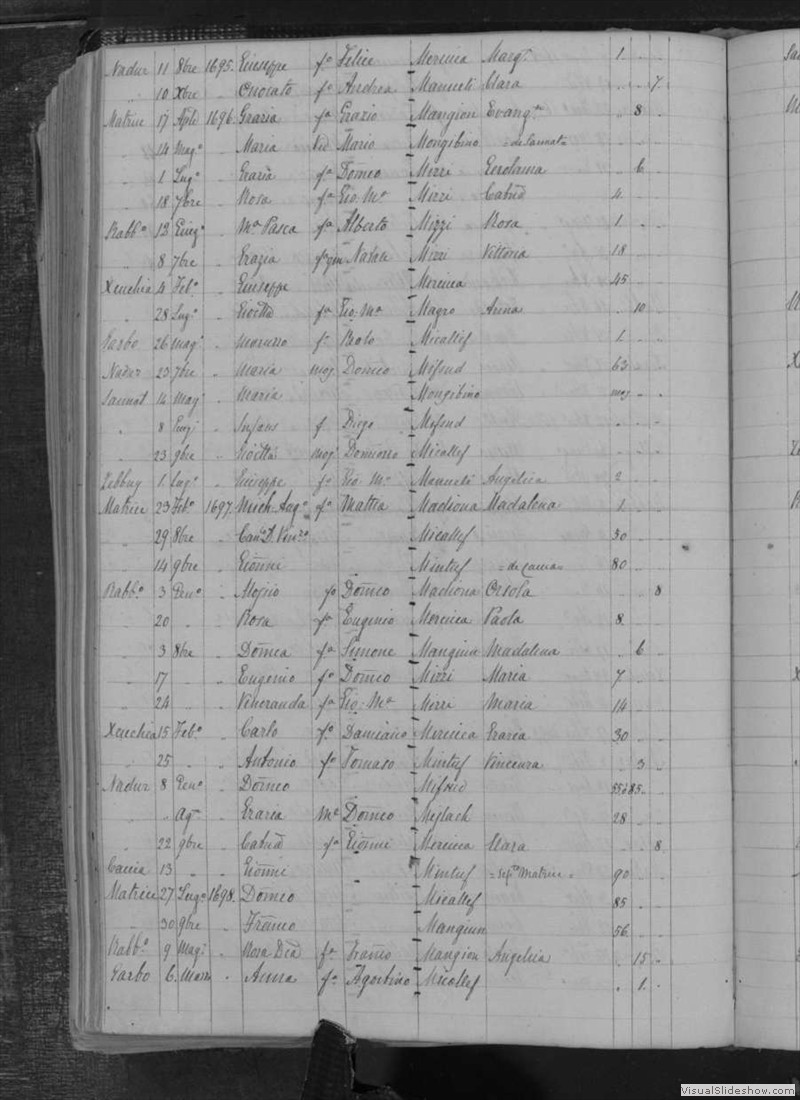 Nadur 11 8bre 1695. Giuseppe fo Felice Mercieca Margta 1
" 10 Xbre " Onorato fo Andrea Manueli Clara 7
Matrice 17 Aple 1696 Grazia fa Grazio Mangion Evanga 8
" 14 Mago " Maria Vid Mario Mongibino
" 1 Lugo " Grazia fa Domco Mizzi Gerolama 6
" 18 7bre " Rosa fa Gio Ma Mizzi Catna 4
Rabbo 12 " Ma Pasca fa Alberto Mizzi Rosa 1
" 8 7bre " Grazia Natale Mizzi Vittoria 18
Xeuchia 4 Febo " Giuseppe Mercieca 45
" 28 Lugo " fa Gio Ma Magro Anna 10
Garbo 26 Mago " f Micallef 1
Nadur 23 7bre " Maria mog Domco Mifsud 63
Sannat 14 Mago " Maria Mongibino mog
" 8 " Infans f Diego Mifsud
" 23 9bre " mog Micallef
Zebbug 1 Lugo " Giuseppe fo Gio Ma Manueli Angelica 2
Matrice 23 Febo 1697. fo Mattia Machiona Madalena 1
" 29 8bre " Micallef 30
" 14 9bre " Gionni Mintuf 80
Rabbo 3 Geno " fo Domco Machiona Orsola 8
" 20 " " Rosa fa Eugenio Mercieca Paola 8
" 3 8bre " Domca fa Simone Mangiun Madalena 6
" 17 " " Eugenio fo Domco Mizzi Maria 7
" 24 " " Veneranda fa Gio. Ma Mizzi Maria 14
Xeuchia 15 Febo " Carlo fo Damiano Mercieca Grazia 30
" 25 " " Antonio fo Tomaso Mintuf Vincenza 3
Nadur 8 Geno " Domco Mifsud
" " Ago " Grazia Me Domco Mejlach 28
" 22 9bre " Catna fa Gionni Mercieca Clara 8
Caccia 13 " " Gionni Mintuf 90
Matrice 27 Lugo 1698. Domco Micallef 85
" 30 9bre " Franco Mangiun 56
Rabbo 9 Mago " Rosa fa Franco Mangion Angelica 15
Garbo 6 Marzo " Anna fa Agostino Micallef 1
VisualSlideshow.com